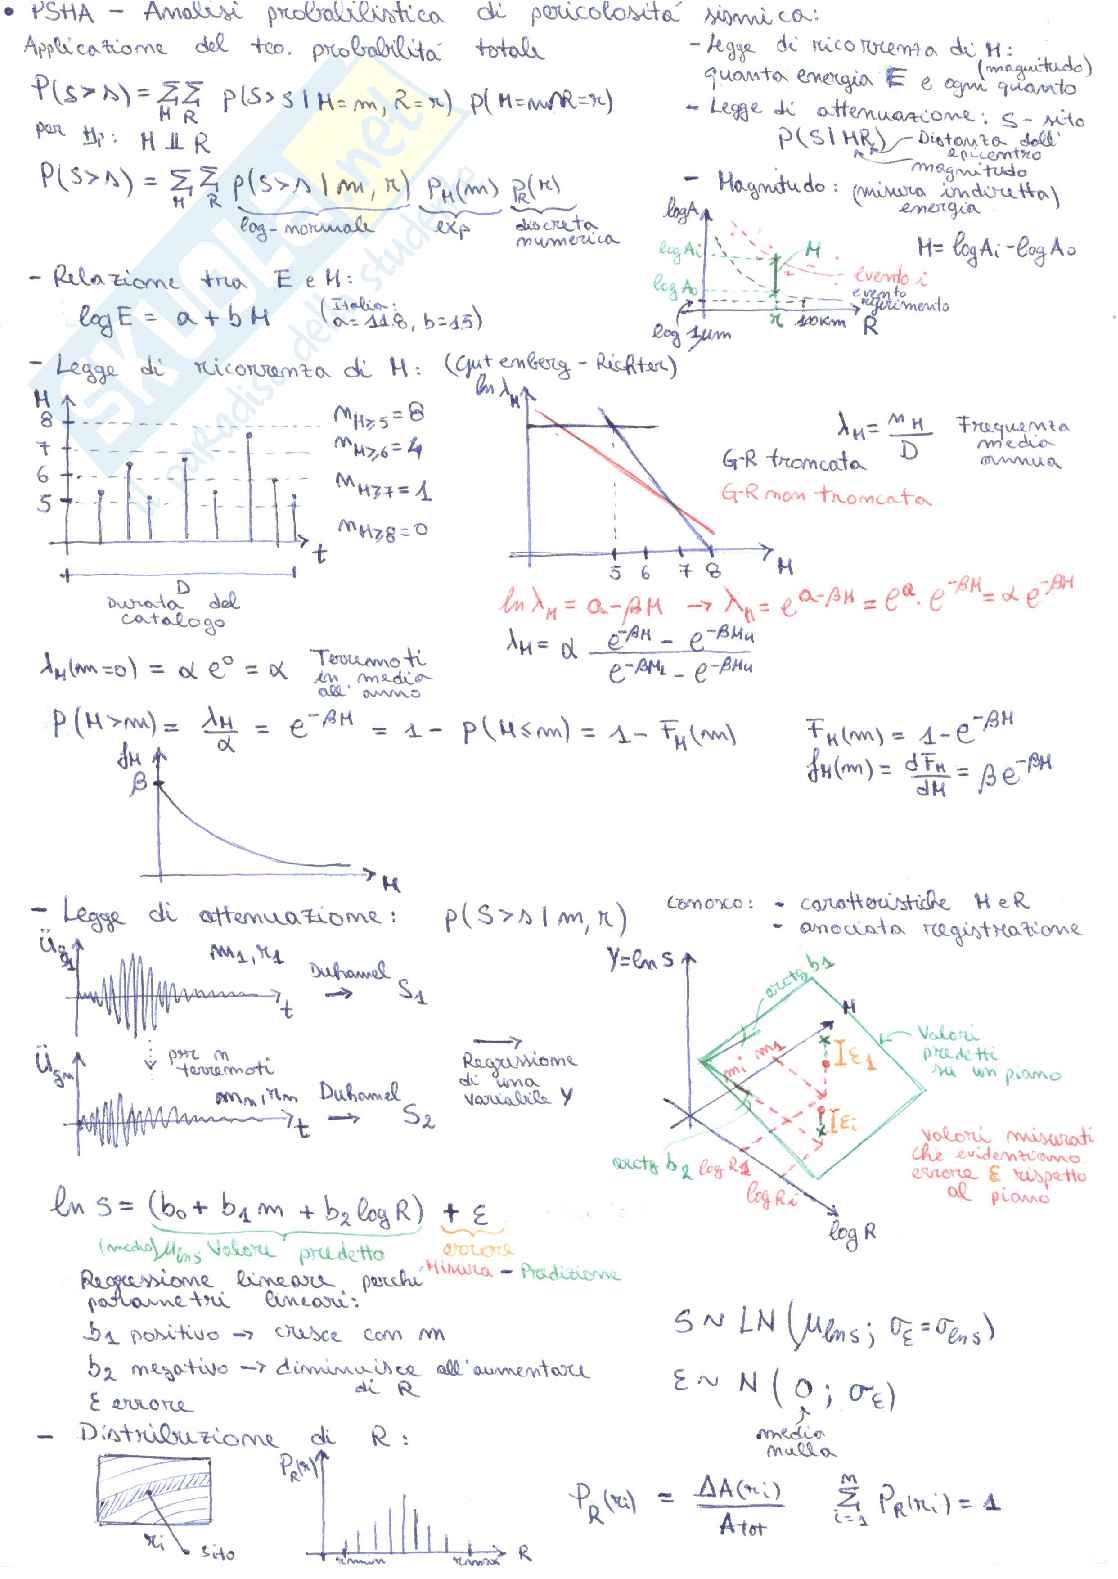 • PSHA – Analisi probabilistica di pericolosità sismica:
Applicazione del teo. probabilità totale
P(S>s) = Σ_M Σ_R p(S>s | M=m, R=r) p(M=m∩R=r)
per Hp: M ⫫ R
P(S>s) = Σ_M Σ_R p(S>s | m, r) P_M(m) P_R(r)
log-normale exp discreta numerica
- Legge di ricorrenza di M: (magnitudo)
quanta energia E e ogni quanto
- Legge di attenuazione: S - sito
P(S|MR) Distanza dall'
epicentro
magnitudo
- Magnitudo: (misura indiretta)
energia
log A
log Ai
log A0
M
evento i
evento
riferimento
log 1μm
r
100km
R
M = log Ai - log A0
- Relazione tra E e M:
log E = a + b M (Italia: a=11.8, b=1.5)
- Legge di ricorrenza di M: (Gutenberg - Richter)
M
8
7
6
5
t
D
Durata del
catalogo
n_M≥5 = 8
n_M≥6 = 4
n_M≥7 = 1
n_M≥8 = 0
ln λ_M
5 6 7 8 M
G-R troncata
G-R non troncata
λ_M = n_M / D Frequenza
media
annua
ln λ_M = a - βM → λ_M = e^(a-βM) = e^a · e^(-βM) = α e^(-βM)
λ_M = α (e^(-βM) - e^(-βMu)) / (e^(-βM1) - e^(-βMu))
λ_M(m=0) = α e^0 = α Terremoti
in media
all'anno
P(M>m) = λ_M / α = e^(-βM) = 1 - p(M≤m) = 1 - F_M(m)
F_M(m) = 1 - e^(-βM)
f_M(m) = dF_M / dM = β e^(-βM)
f_M
β
M
- Legge di attenuazione: p(S>s | m, r)
conosco: - caratteristiche M e R
- associata registrazione
Ü_g1
m1, r1
t
Duhamel
→ S1
per n
terremoti
Ü_gn
mn, rn
t
Duhamel
→ S2
→
Regressione
di una
variabile Y
Y = ln S
arctg b1
M
mi m1
Iε1
Iεi
Valori
predetti
su un piano
arctg b2
log R1
log Ri
log R
Valori misurati
che evidenziano
errore ε rispetto
al piano
ln S = (b0 + b1 m + b2 log R) + ε
(media) μ_lnS Valore predetto errore
Misura - Predizione
Regressione lineare perché
parametri lineari:
b1 positivo → cresce con m
b2 negativo → diminuisce all'aumentare
di R
ε errore
S ~ LN (μ_lnS; σ_ε = σ_lnS)
ε ~ N (0; σ_ε)
media
nulla
- Distribuzione di R:
ri
sito
P_R(r)
rmin
rmax
R
P_R(ri) = ΔA(ri) / Atot
Σ_{i=1}^{m} P_R(ri) = 1
SKUOLA.net
il paradiso dello studente